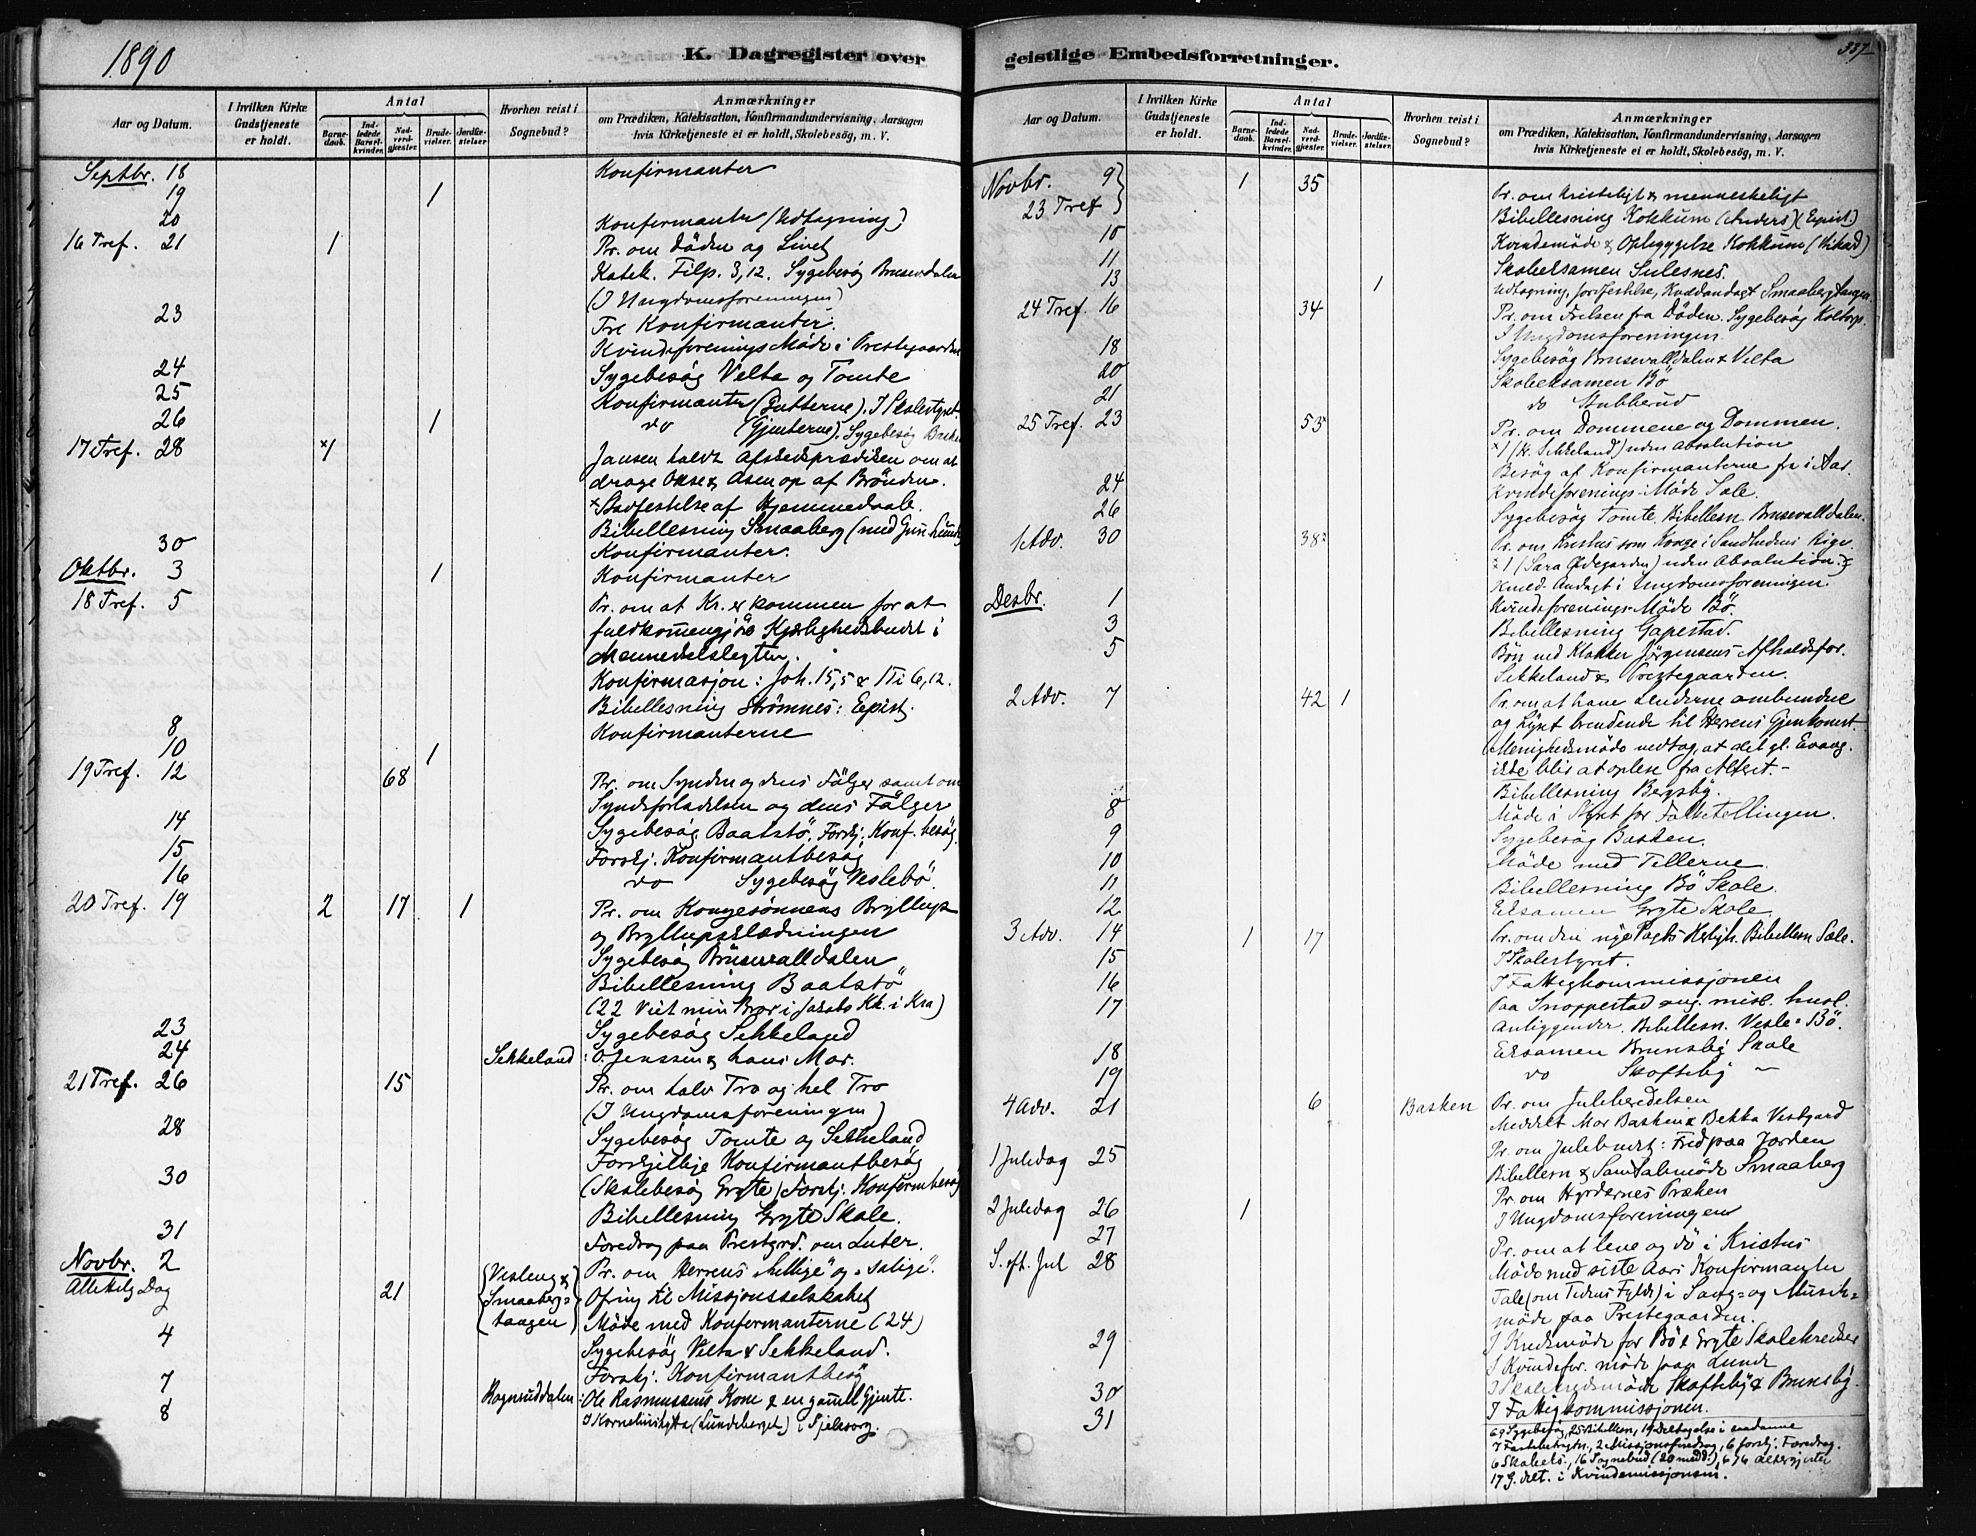 1890
K. Dagregister over
Aar og Datum.
I hvilken Kirke Gudstjeneste er holdt.
Antal
Barne-daab.
Ind-ledede Barsel-kvinder.
Nad-verd-gjæster.
Brude-vielser.
Jordfæ-stelser
Hvorhen reist i Sognebud?
Anmærkninger
om Prædiken, Katekisation, Konfirmandundervisning, Aarsagen
hvis Kirketjeneste ei er holdt, Skolebesög, m. V.
Septbr. 18 Konfirmanter
19 1
20 Konfirmanter (Udtagning)
16 Tref. 21 1 Pr. om Döden og Livet
Katek. Filp. 3,12. Sygebesög Brusevdalen
(I Ungdomsforeningen)
23 Tre Konfirmanter.
Kvindeforenings Möde i Prestegaarden
24 Sygebesög Velta og Tomte
25 Konfirmanter (Gutterne). I Skolestyret.
26 1 do (Gjenterne). Sygebesög Basken
17 Tref. 28 ×1 Jansen holdt Afskedsprædiken om at
drage Okse & Asen op af Brönden.
× Stadfestelse af Hjemmedaab.
Bibellesning Smaaberg
30 Konfirmanter.
Oktbr. 3 1 Konfirmanter
18 Tref. 5 Pr. om at Kr. er kommen for at
fuldkommengjöre Kjærlighedsbudet i
Menneskeslegten.
Konfirmasjon: Joh. 15,5 & 1 Ti 6,12.
Bibellesning Strömnes: Epist.
8 Konfirmanterne
10 1
19 Tref. 12 68 Pr. om Synden og dens Fölger samt om
Syndsforladelsen og dens Fölger
14 Sygebesög Baatstö, Forskj. Konf. besög.
15 Forskj. Konfirmantbesög
16 do Sygebesög Veslebö.
20 Tref. 19 2 17 1 Pr. om Kongesönnens Bryllup
og Bryllupsklædningen
Sygebesög Brusevalldalen
Bibellesning Baatstö
(22 Viet min Bror i Jakobs Kk. i Kra)
23 Sygebesög Sekkeland
24 Sekkeland : O. Jenssen & hans Mor.
21 Tref. 26 15 Pr. om halv Tro og hel Tro
(I Ungdomsforeningen)
28 Sygebesög Tomte og Sekkeland
Forskjellige Konfirmantbesög
30 (Skolebesög Gryte) Forskj. Konfirmbesög
Bibellesning Gryte Skole.
31 Foredrag paa Prestgrd. om Luter.
Novbr. 2 Pr. om Herrens "hellige" og "salige".
Allehelg Dag 21 (Vesleng & Smaaberg=taagen) Ofring til Missjonsselskabet
Möde med Konfirmanterne (24)
4 Sygebesög Velta & Sekkeland.
7 Forskj. Konfirmantbesög
8 Bognuddalen : Ole Rasmussens Kone & en gammel Gjente.
(Lundeberget) i Sjelesorg.
geistlige Embedsforretninger.
337
Aar og Datum.
I hvilken Kirke Gudstjeneste er holdt.
Antal
Barne-daab.
Ind-ledede Barsel-kvinder.
Nad-verd-gjæster.
Brude-vielser.
Jordfæ-stelser
Hvorhen reist i Sognebud?
Anmærkninger
om Prædiken, Katekisation, Konfirmandundervisning, Aarsagen
hvis Kirketjeneste ei er holdt, Skolebesög, m. V.
Novbr. 9 1 35 Pr. om kristeligt & menneskeligt
23 Tref Bibellesning Kokkum (Anders) (Epist.)
10 Kvindemöde & Opbyggelse Kokkum
11 Skoleksamen Sulesnes.
13 1 Udtagning, Jordfestelse, Kveldandagt Smaabergtangen
24 Tref. 16 34 Pr. om Frelsen fra Döden. Sygebesög Koltorp.
I Ungdomsforeningen.
18 Sygebesög Brusevalldalen & Velta
20 Skoleeksamen Bö
21 do Stubberud
25 Tref. 23 53× Pr. om Dommene og Dommen.
×1 (K. Sekkeland) uden Absolution
Besög af Konfirmanterne fra i Aar.
24 Kvindeforenings-Möde Sole.
26 Sygebesög Tomte. Bibellesn. Brusevalldalen.
1 Adv. 30 38× Pr. om Kristus som Konge i Sandhedens Rige.
×1 (Sara Ödegarden) uden Absolution.
Kveld-Andagt i Ungdomsforeningen.
Desbr. 1 Kvindeforenings-Möde Bö.
3 Bibellesning Gapestad.
5 Bön ved Klokker Jörgensens Afholdsfor.
Sekkeland & Prestegaarden.
2 Adv. 7 42 1 Pr. om at have Lenderne ombundne
og Lyset brendende til Herrens Gjenkomst
(Menighedsmöde vedtog, at det gl. Evang.
ikke blir at oplese fra Alteret.-
Bibellesning Bergsby.
8 Möde i Styret for Folketellingen.
9 Sygebesög Basken.
10 Möde med Tellerne
11 Bibellesning Bö Skole.
12 Eksamen Gryte Skole.
3 Adv. 14 1 17 Pr. om den nye Pagts Herligh. Bibellesn Sole.
15 I Skolestyret.
16 I Fattigkommissjonen
17 Paa Snoppestad ang. misl. husl.
Anliggender. Bibellesn. Vesle=Bö.
18 Eksamen Brunsby Skole
19 do Skofteby -
4 Adv. 21 6 Basken Pr. om Juleberedelsen
Meddelt Mor Basken & Bekka Vestgard
1 Juledag 25 Pr. om Julebudet: Fred paa Jorden
Bibellesn & Samtalemöde Smaaberg
2 Juledag 26 1 Pr. om Hyrdernes Præken
27 I Ungdomsforeningen
S. eft. Jul 28 Pr. om at leve og dö i Kristus
Möde med siste Aars Konfirmanter
Tale (om Tidens Fylde) i Sang=og Musik=
möde paa Prestegaarden.
29 I Kredsmöde for Bö & Gryte Skolekredser
I Kvindefor. möde paa Lunde
30 I Skolekredsmöde Skofteby & Brunsby.
31 I Fattigkommissjonen.
69 Sygebesög, 25 Bibellesn, 19 Deltagelse i saadanne
7 Fastebetragtn., 2 Missjonsforedrag, 6 forskj. Foredrag.
6 Skolebs., 16 Sognebud (20 medd.), 676 altergjester
17 G. delt. i Kvindemissjonsm.